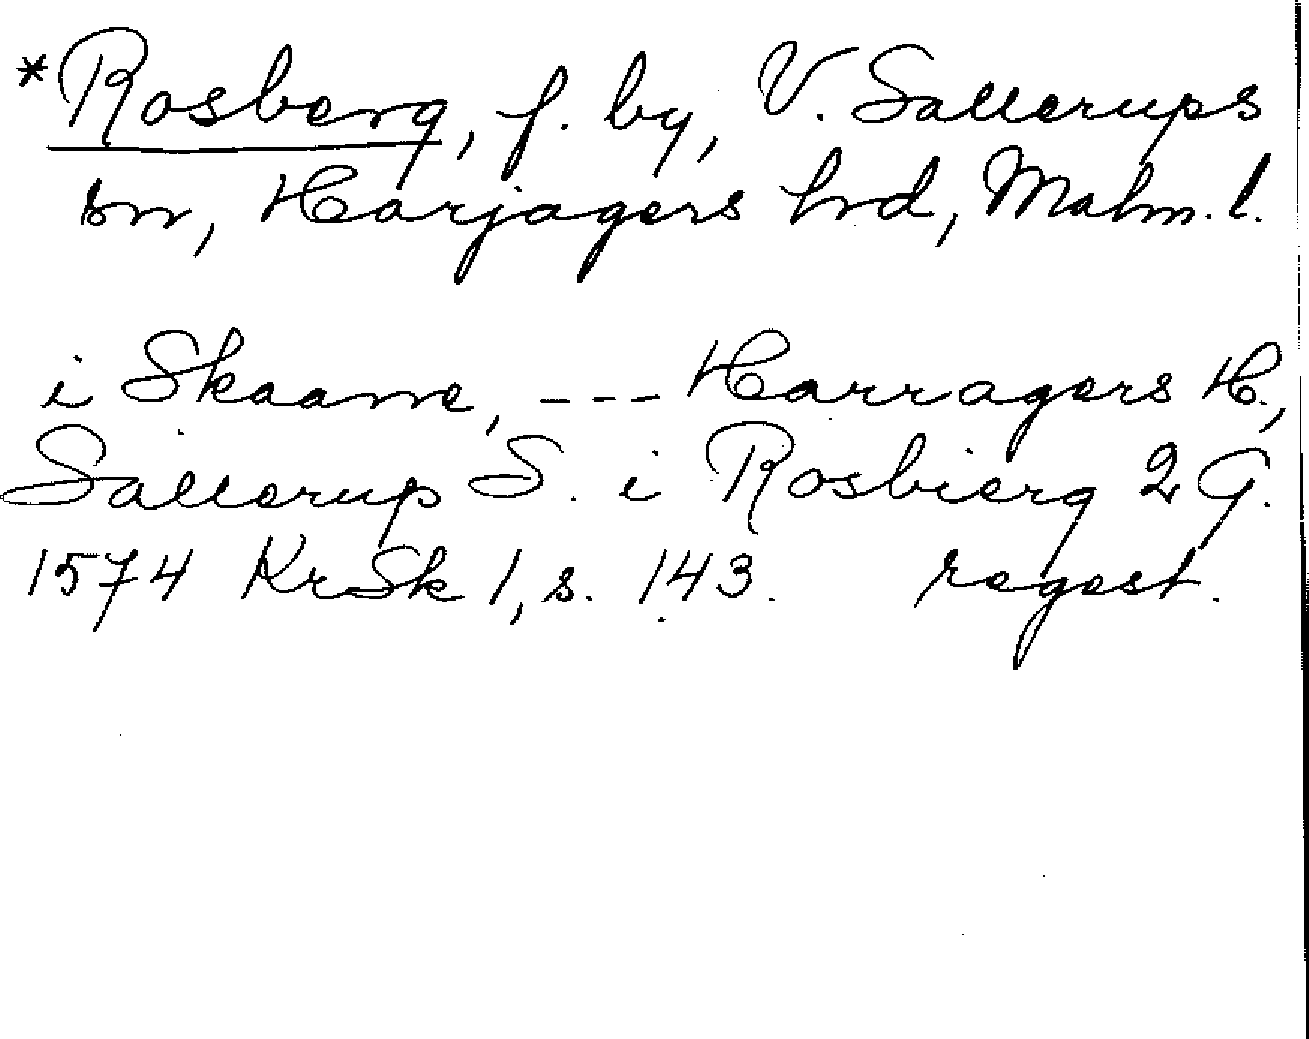 *Rosberg, f. by, V. Sallerups
sn, Harjagers hd, Malm. l.
i Skaane, --- Harragers H.,
Sallerup S. i Rosbierg 2 G.
1574 KrSk 1, s. 143. regest.